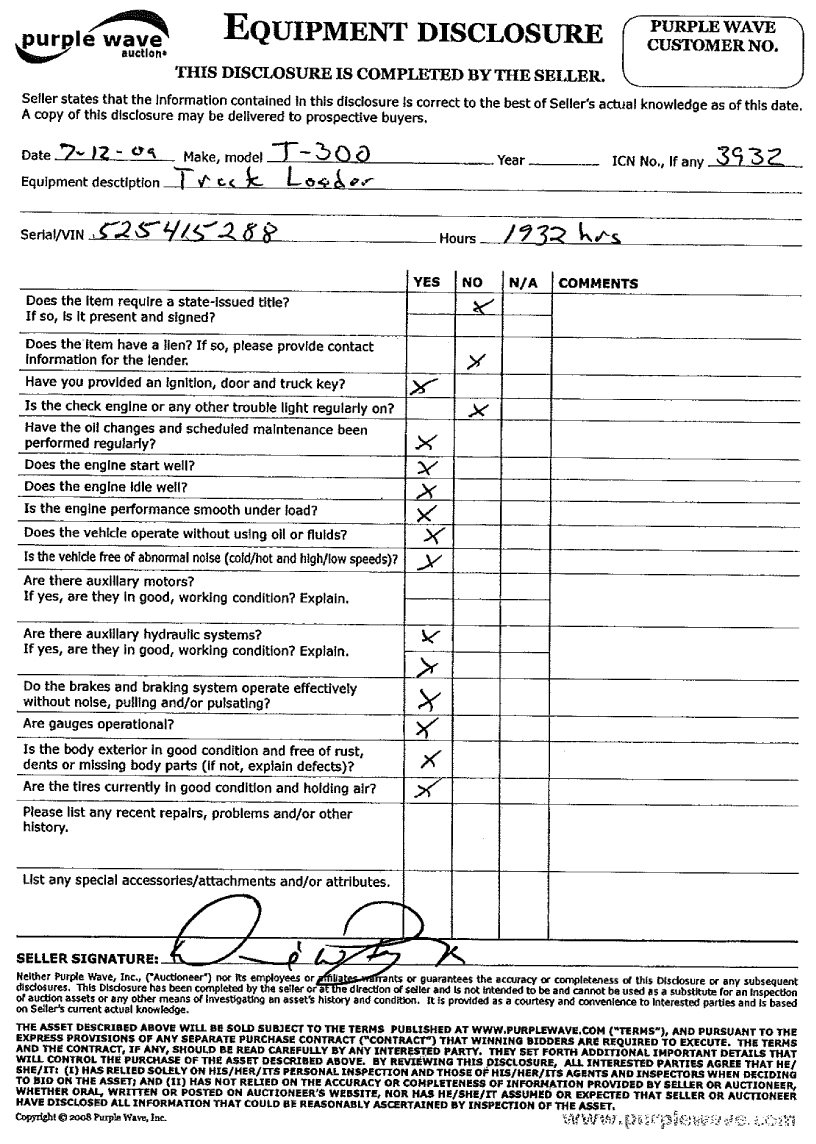 purple wave
auction
EQUIPMENT DISCLOSURE
PURPLE WAVE
CUSTOMER NO.
THIS DISCLOSURE IS COMPLETED BY THE SELLER.
Seller states that the information contained in this disclosure is correct to the best of Seller's actual knowledge as of this date.
A copy of this disclosure may be delivered to prospective buyers.
Date 7-12-09 Make, model T-300 Year ICN No., if any 3932
Equipment desctiption Treck Loader
Serial/VIN 525415288 Hours 1932 hrs
YES NO N/A COMMENTS
Does the item require a state-issued title? X
If so, is it present and signed?
Does the item have a lien? If so, please provide contact
information for the lender. X
Have you provided an ignition, door and truck key? X
Is the check engine or any other trouble light regularly on? X
Have the oil changes and scheduled maintenance been
performed regularly? X
Does the engine start well? X
Does the engine idle well? X
Is the engine performance smooth under load? X
Does the vehicle operate without using oil or fluids? X
Is the vehicle free of abnormal noise (cold/hot and high/low speeds)? X
Are there auxiliary motors?
If yes, are they in good, working condition? Explain.
Are there auxiliary hydraulic systems? X
If yes, are they in good, working condition? Explain. X
Do the brakes and braking system operate effectively
without noise, pulling and/or pulsating? X
Are gauges operational? X
Is the body exterior in good condition and free of rust,
dents or missing body parts (if not, explain defects)? X
Are the tires currently in good condition and holding air? X
Please list any recent repairs, problems and/or other
history.
List any special accessories/attachments and/or attributes.
SELLER SIGNATURE:
Neither Purple Wave, Inc., ("Auctioneer") nor its employees or affiliates warrants or guarantees the accuracy or completeness of this Disclosure or any subsequent
disclosures. This Disclosure has been completed by the seller or at the direction of seller and is not intended to be and cannot be used as a substitute for an inspection
of auction assets or any other means of investigating an asset's history and condition. It is provided as a courtesy and convenience to interested parties and is based
on Seller's current actual knowledge.
THE ASSET DESCRIBED ABOVE WILL BE SOLD SUBJECT TO THE TERMS PUBLISHED AT WWW.PURPLEWAVE.COM ("TERMS"), AND PURSUANT TO THE
EXPRESS PROVISIONS OF ANY SEPARATE PURCHASE CONTRACT ("CONTRACT") THAT WINNING BIDDERS ARE REQUIRED TO EXECUTE. THE TERMS
AND THE CONTRACT, IF ANY, SHOULD BE READ CAREFULLY BY ANY INTERESTED PARTY. THEY SET FORTH ADDITIONAL IMPORTANT DETAILS THAT
WILL CONTROL THE PURCHASE OF THE ASSET DESCRIBED ABOVE. BY REVIEWING THIS DISCLOSURE, ALL INTERESTED PARTIES AGREE THAT HE/
SHE/IT: (I) HAS RELIED SOLELY ON HIS/HER/ITS PERSONAL INSPECTION AND THOSE OF HIS/HER/ITS AGENTS AND INSPECTORS WHEN DECIDING
TO BID ON THE ASSET; AND (II) HAS NOT RELIED ON THE ACCURACY OR COMPLETENESS OF INFORMATION PROVIDED BY SELLER OR AUCTIONEER,
WHETHER ORAL, WRITTEN OR POSTED ON AUCTIONEER'S WEBSITE, NOR HAS HE/SHE/IT ASSUMED OR EXPECTED THAT SELLER OR AUCTIONEER
HAVE DISCLOSED ALL INFORMATION THAT COULD BE REASONABLY ASCERTAINED BY INSPECTION OF THE ASSET.
Copyright © 2008 Purple Wave, Inc.
www.purplewave.com